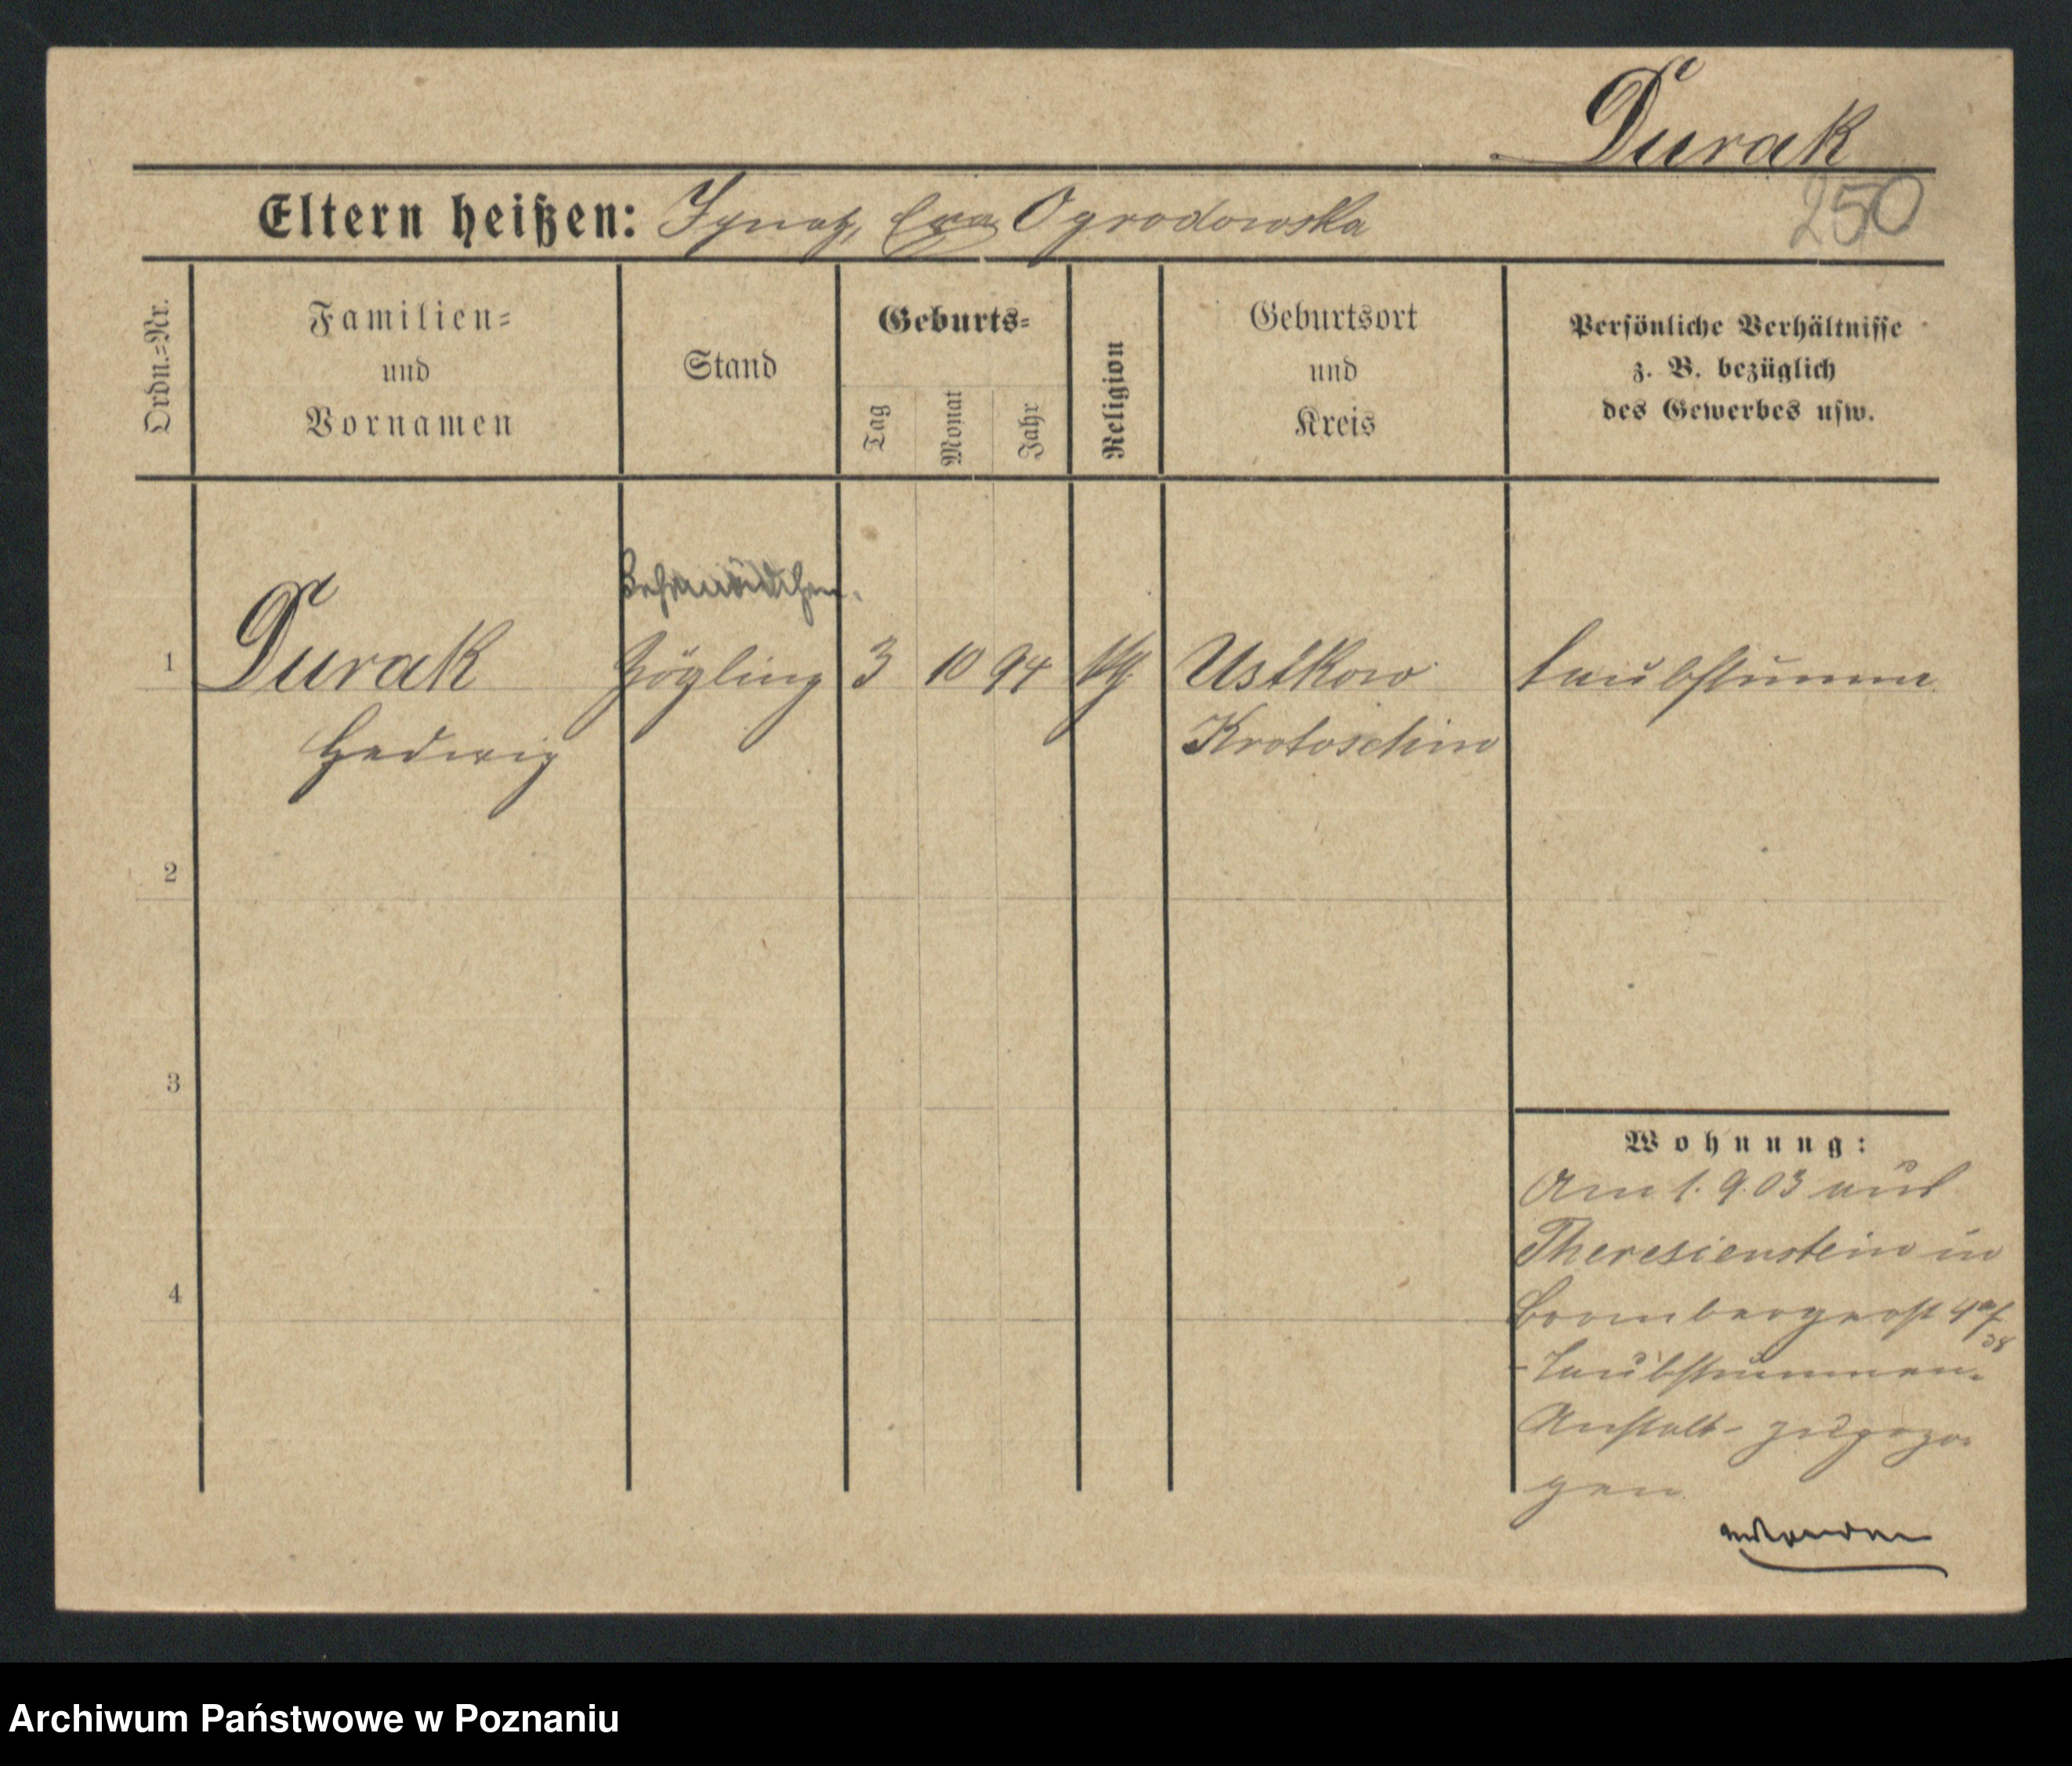 Durak
250
Eltern heißen: Ignatz, Eva Ogrodowska
Ordn.=Nr.
Familien=
und
Vornamen
Stand
Geburts=
Tag
Monat
Jahr
Religion
Geburtsort
und
Kreis
Persönliche Verhältnisse
z. B. bezüglich
des Gewerbes usw.
1 Durak Zögling 3 10 94 Ustkow taubstumm
Hedwig Krotoschin
2
3
4
Wohnung:
Am 1. 9. 03 aus
Theresienstein in
Brombergerst
- Taubstummen-
Anstalt - zugezo-
gen
Archiwum Państwowe w Poznaniu